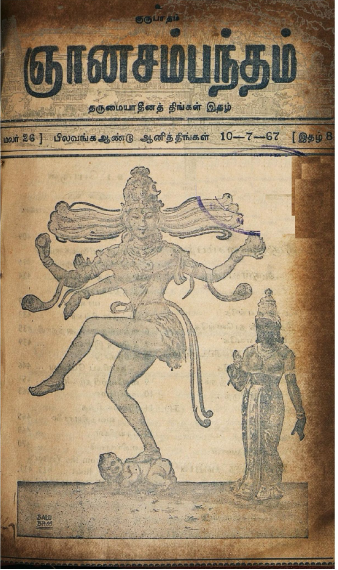 குருபாதம்
ஞானசம்பந்தம்
தருமையாதீனத் திங்கள் இதழ்
மலர் 26 ] பிலவங்க ஆண்டு ஆனித் திங்கள் 10—7—67 [ இதழ் 8